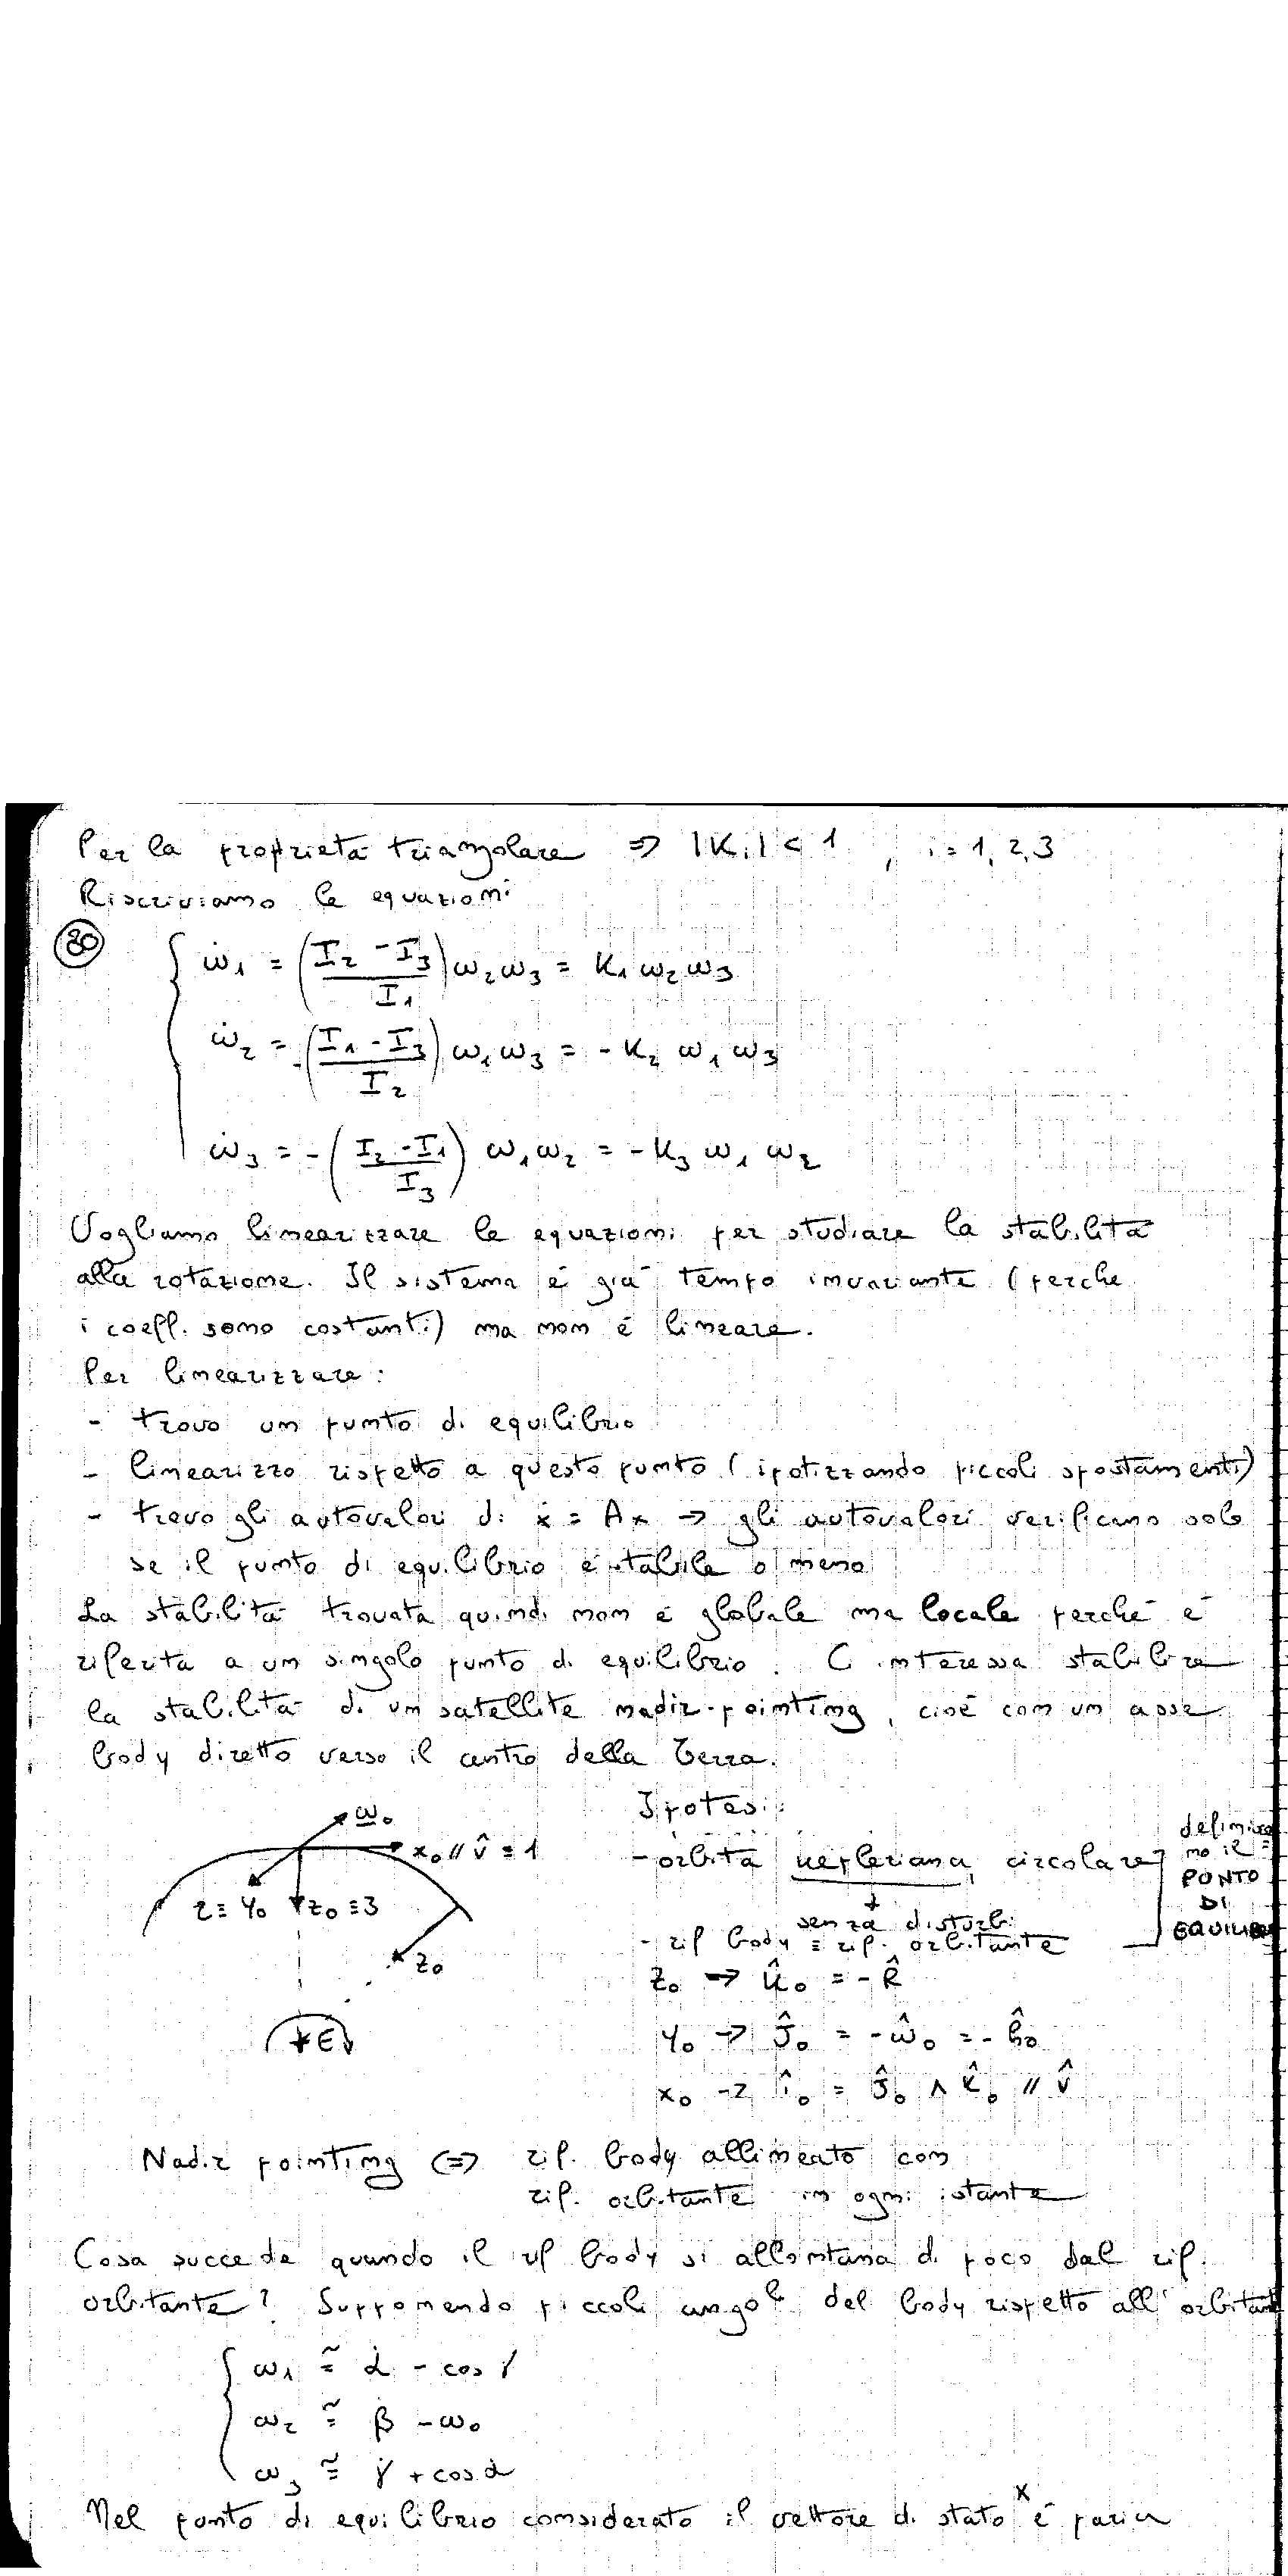 Per la proprietà triangolare => |Ki| < 1 , i = 1, 2, 3
Riscriviamo le equazioni
80
ω̇1 = ((I2 - I3)/I1) ω2 ω3 = K1 ω2 ω3
ω̇2 = -((I1 - I3)/I2) ω1 ω3 = - K2 ω1 ω3
ω̇3 = - ((I2 - I1)/I3) ω1 ω2 = - K3 ω1 ω2
Vogliamo linearizzare le equazioni per studiare la stabilità
alla rotazione. Il sistema è già tempo invariante (perchè
i coeff. sono costanti) ma non è lineare.
Per linearizzare:
- trovo un punto di equilibrio
- linearizzo rispetto a questo punto (ipotizzando piccoli spostamenti)
- trovo gli autovalori di ẋ = Ax → gli autovalori verificano solo
se il punto di equilibrio è stabile o meno
La stabilità trovata quindi non è globale ma locale perchè è
riferita a un singolo punto di equilibrio. Ci interessa stabilire
la stabilità di un satellite nadir-pointing, cioè con un asse
body diretto verso il centro della Terra.
ω0
x0 // v̂ ≡ 1
2 ≡ y0
z0 ≡ 3
z0
Ipotesi:
- orbita kepleriana, circolare
senza disturbi
- rif body ≡ rif. orbitante
definisco
no il
PUNTO
DI
EQUILIB
z0 → k̂0 = - R̂
y0 → ĵ0 = - ω̂0 = - ĥ0
x0 → î0 = ĵ0 ∧ k̂0 // v̂
Nadir pointing <=> rif. body allineato con
rif. orbitante in ogni istante
Cosa succede quando il rif body si allontana di poco dal rif.
orbitante? Supponendo piccoli angoli del body rispetto all'orbitant
ω1 ≅ α̇ - cos γ
ω2 ≅ β̇ - ω0
ω3 ≅ γ̇ + cos α
Nel punto di equilibrio considerato il vettore di stato x è pari a